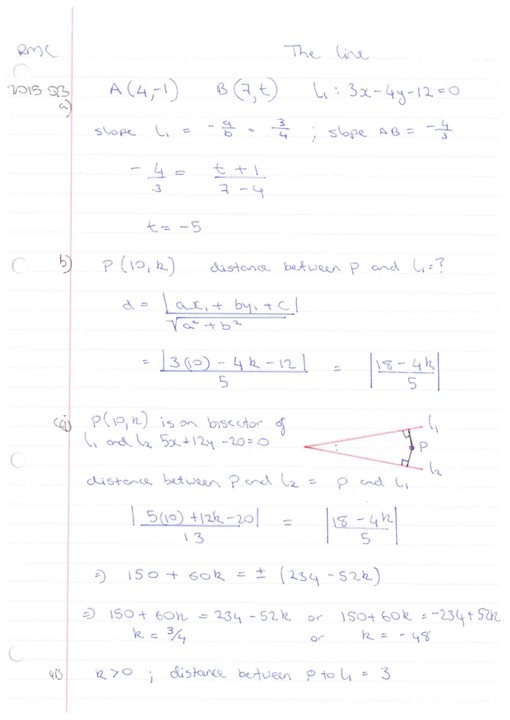 RMC
The line
2015 Q3
a) A(4,-1) B(7,t) l₁: 3x-4y-12=0
slope l₁ = -a/b = 3/4 ; slope AB = -4/3
-4/3 = (t+1)/(7-4)
t = -5
b) P(10,k) distance between P and l₁=?
d = |ax₁ + by₁ + c| / √(a² + b²)
= |3(10) - 4k - 12| / 5 = |(18-4k)/5|
c(i) P(10,k) is on bisector of
l₁ and l₂ 5x+12y-20=0
l₁
P
l₂
distance between P and l₂ = P and l₁
|5(10)+12k-20| / 13 = |(18-4k)/5|
⇒) 150 + 60k = ± (234-52k)
⇒) 150+60k = 234-52k or 150+60k = -234+52k
k = 3/4 or k = -48
(ii) k>0 ; distance between P to l₁ = 3